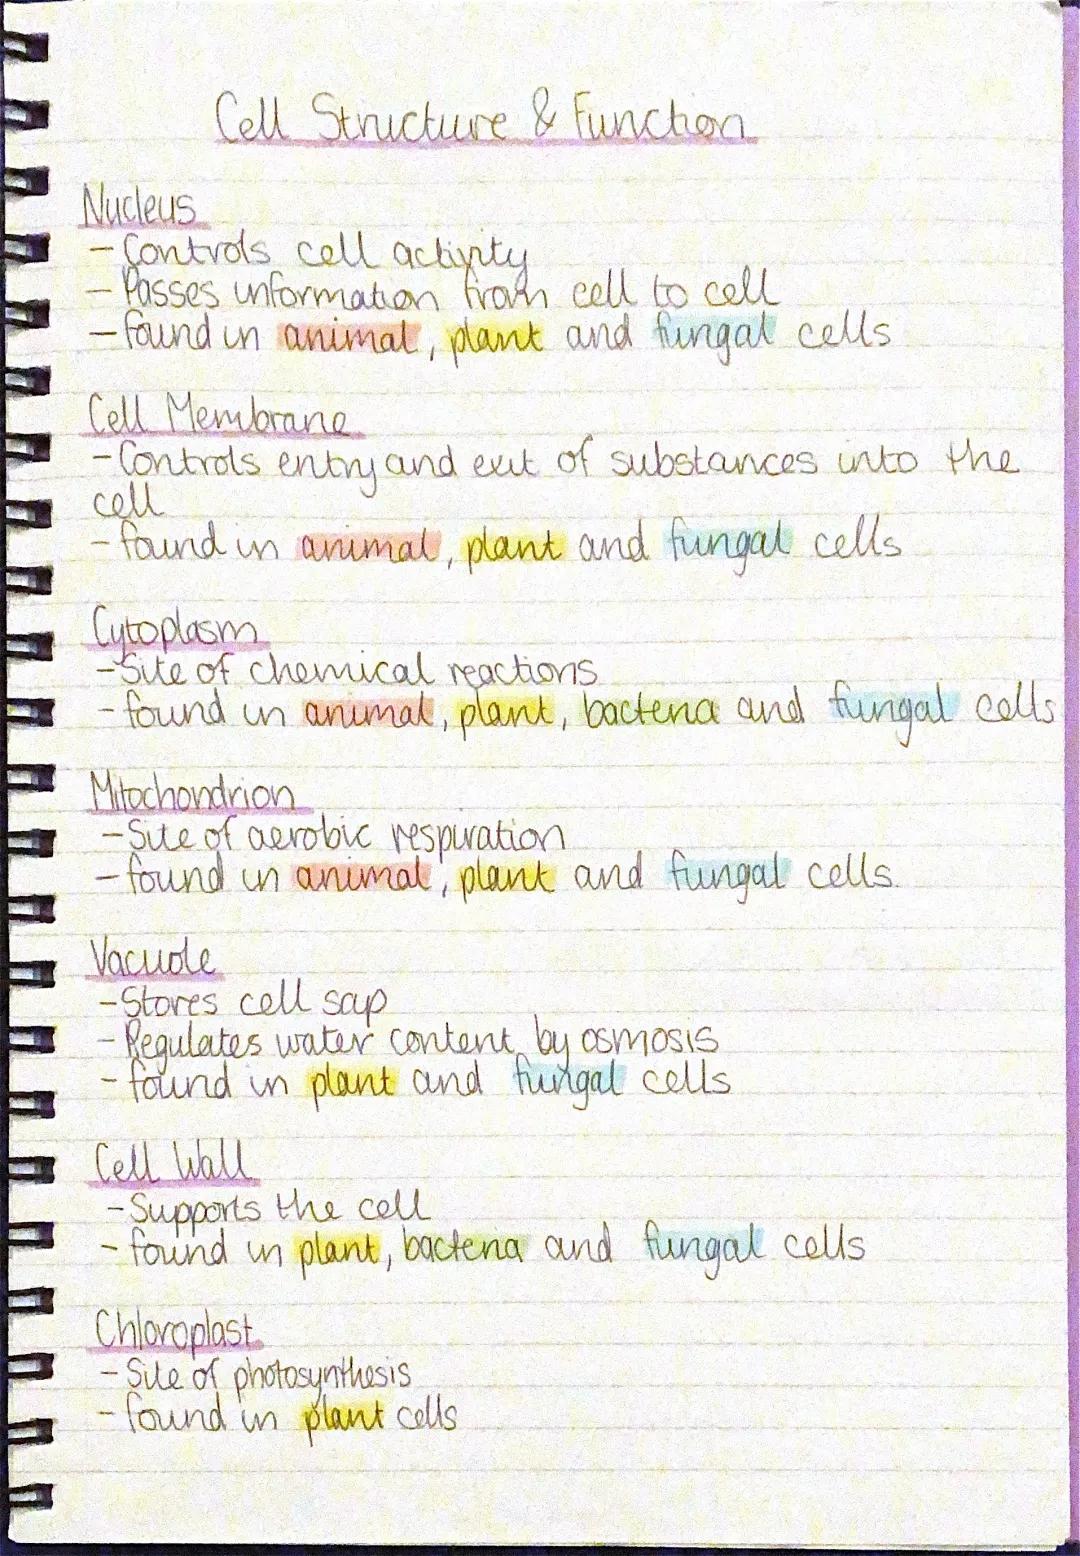 Cell Structure & Function
Nucleus
- Controls cell activity
- Passes information from cell to cell
- found in animal, plant and fungal cells
Cell Membrane
- Controls entry and exit of substances into the
cell
- found in animal, plant and fungal cells
Cytoplasm
- Site of chemical reactions
- found in animal, plant, bacteria and fungal cells
Mitochondrion
- Site of aerobic respiration
- found in animal, plant and fungal cells.
Vacuole
- Stores cell sap
- Regulates water content by osmosis
- found in plant and fungal cells
Cell Wall
- Supports the cell
- found in plant, bacteria and fungal cells
Chloroplast
- Site of photosynthesis
- found in plant cells